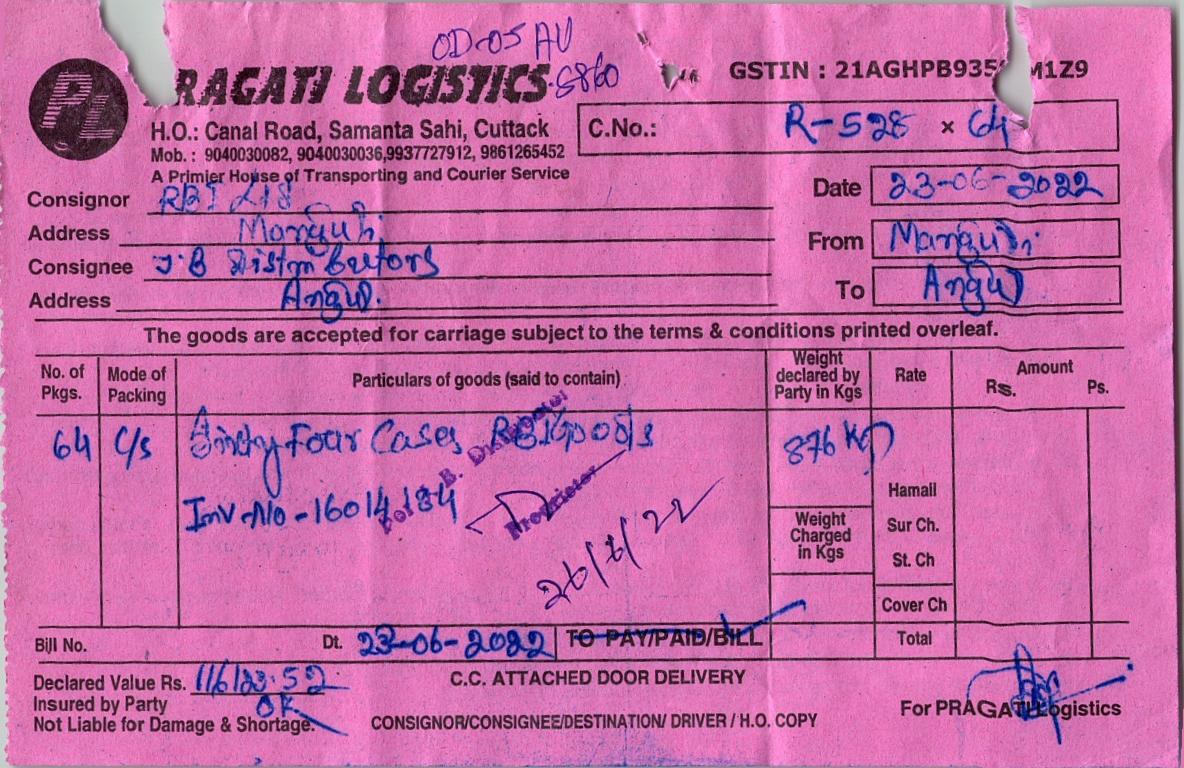 OD-05 AU
5860
PL PRAGATI LOGISTICS
GSTIN : 21AGHPB935 M1Z9
H.O.: Canal Road, Samanta Sahi, Cuttack
Mob. : 9040030082, 9040030036,9937727912, 9861265452
A Primier House of Transporting and Courier Service
C.No.: R-528 × 64
Date 23-06-2022
Consignor RBI
Address Manguli
From Manguli
Consignee J.B Distributors
Address Angul.
To Angul
The goods are accepted for carriage subject to the terms & conditions printed overleaf.
No. of Pkgs. Mode of Packing Particulars of goods (said to contain) Weight declared by Party in Kgs Rate Amount Rs. Ps.
64 C/s Four Cases RBI Goods 876 Kg
Inv-No-16014184
For J. B. Distributors
Proprietor
26/6/22
Hamail
Weight Charged in Kgs
Sur Ch.
St. Ch
Cover Ch
Bill No. Dt. 23-06-2022 TO PAY/PAID/BILL Total
Declared Value Rs. 116122.52
C.C. ATTACHED DOOR DELIVERY
Insured by Party OK
Not Liable for Damage & Shortage.
CONSIGNOR/CONSIGNEE/DESTINATION/ DRIVER / H.O. COPY
For PRAGATI Logistics